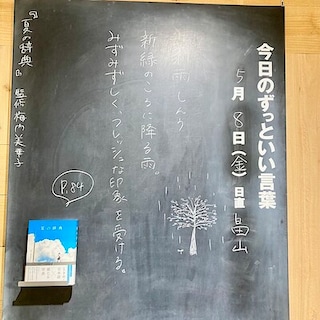 今日のずっといい言葉
5月8日(金) 日直 畠山
新緑のころに降る雨。
みずみずしく、フレッシュな印象を受ける。
『夏の辞典』 監修 梅内美華子
P.84